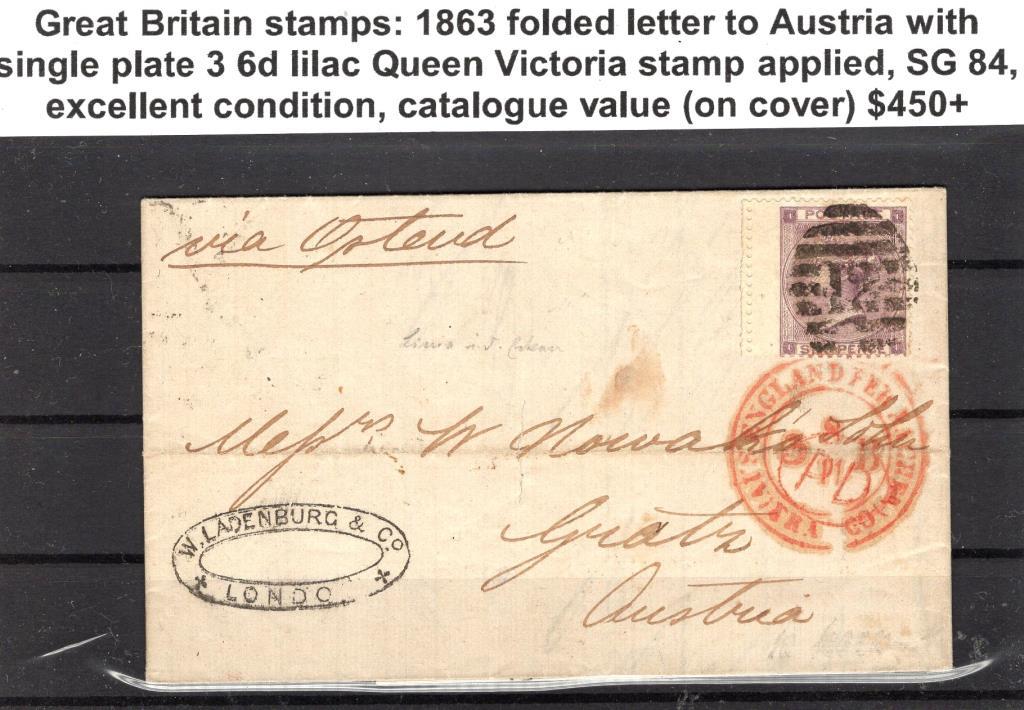 Great Britain stamps: 1863 folded letter to Austria with
single plate 3 6d lilac Queen Victoria stamp applied, SG 84,
excellent condition, catalogue value (on cover) $450+
via Ostend
PO
12
SIXPENCE
ENGLAND PER
AACHEN
FRANCO
PD
Messrs W Nowak's Sohn
Gratz
Austria
W. LADENBURG & Co
LONDO